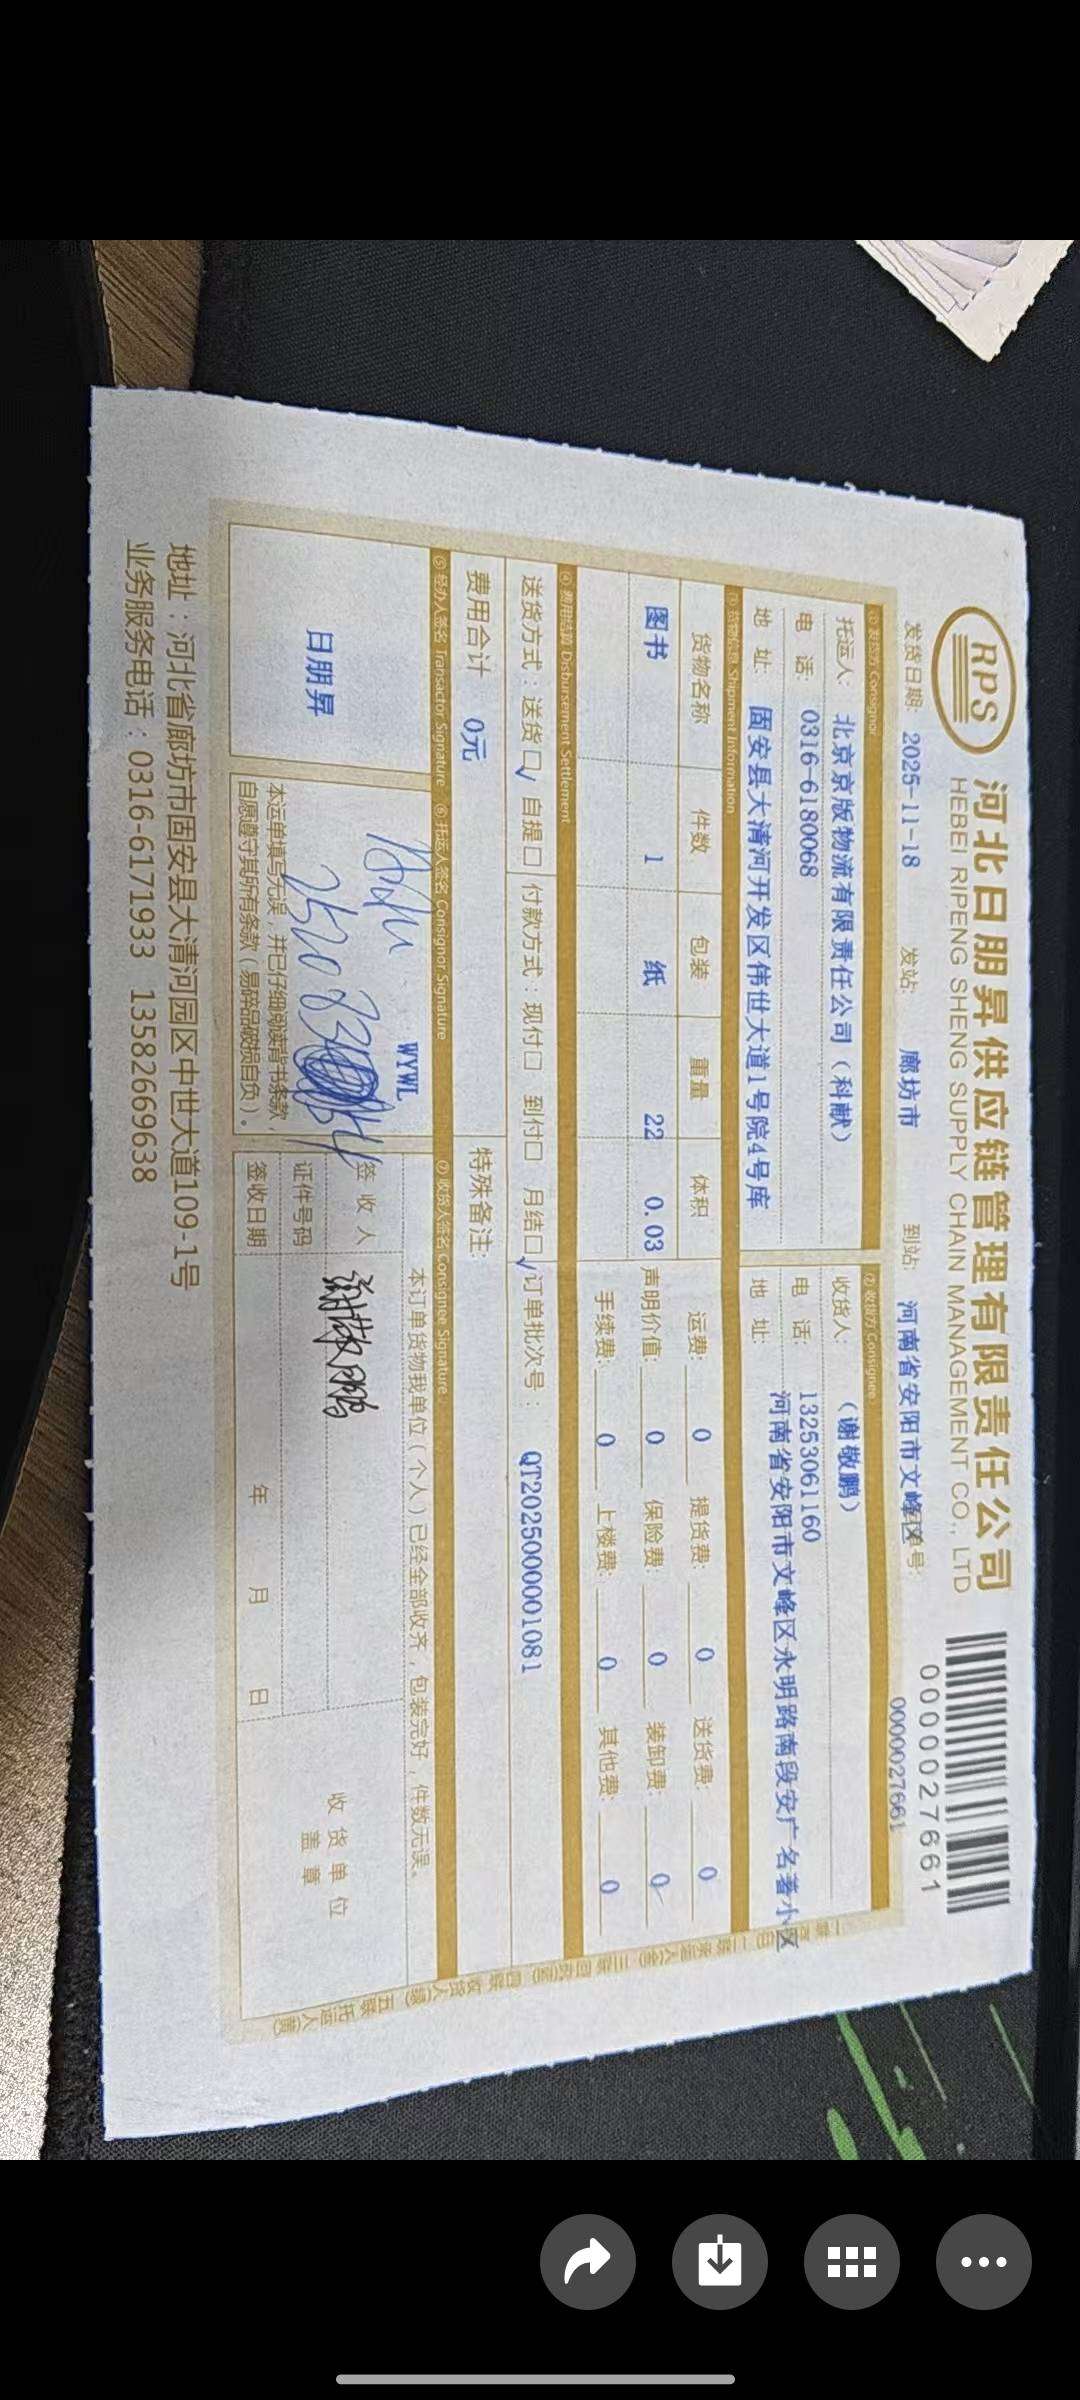 RPS
河北日朋昇供应链管理有限责任公司
HEBEI RIPENG SHENG SUPPLY CHAIN MANAGEMENT CO., LTD
0000027661
发货日期: 2025-11-18 发站: 廊坊市 到站: 河南省安阳市文峰区 单号: 0000027661
① 发货方 Consignor ② 收货方 Consignee
托运人: 北京京版物流有限责任公司（科献） 收货人: （谢敬鹏）
电 话: 0316-6180068 电 话: 13253061160
地 址: 固安县大清河开发区伟世大道1号院4号库 地 址: 河南省安阳市文峰区永明路南段安广名著小区
③ 货物信息 Shipment Information
货物名称 件数 包装 重量 体积 运费: 0 提货费: 0 送货费: 0
图书 1 纸 22 0.03 声明价值: 0 保险费: 0 装卸费: 0
手续费: 0 上楼费: 0 其他费: 0
④ 费用结算 Disbursement Settlement
送货方式：送货☐√ 自提☐ 付款方式：现付☐ 到付☐ 月结☐√ 订单批次号: QT2025000001081
费用合计 0元 特殊备注:
⑤ 经办人签名 Transactor Signature ⑥ 托运人签名 Consignor Signature ⑦ 收货人签名 Consignee Signature
日朋昇
WYWL
本运单填写无误，并已仔细阅读背书条款，
自愿遵守其所有条款（易碎品破损自负）。
本订单货物我单位（个人）已经全部收齐，包装完好，件数无误。
签 收 人 谢敬鹏
证件号码
签收日期 年 月 日
收 货 单 位
盖 章
地址：河北省廊坊市固安县大清河园区中世大道109-1号
业务服务电话：0316-6171933 13582669638